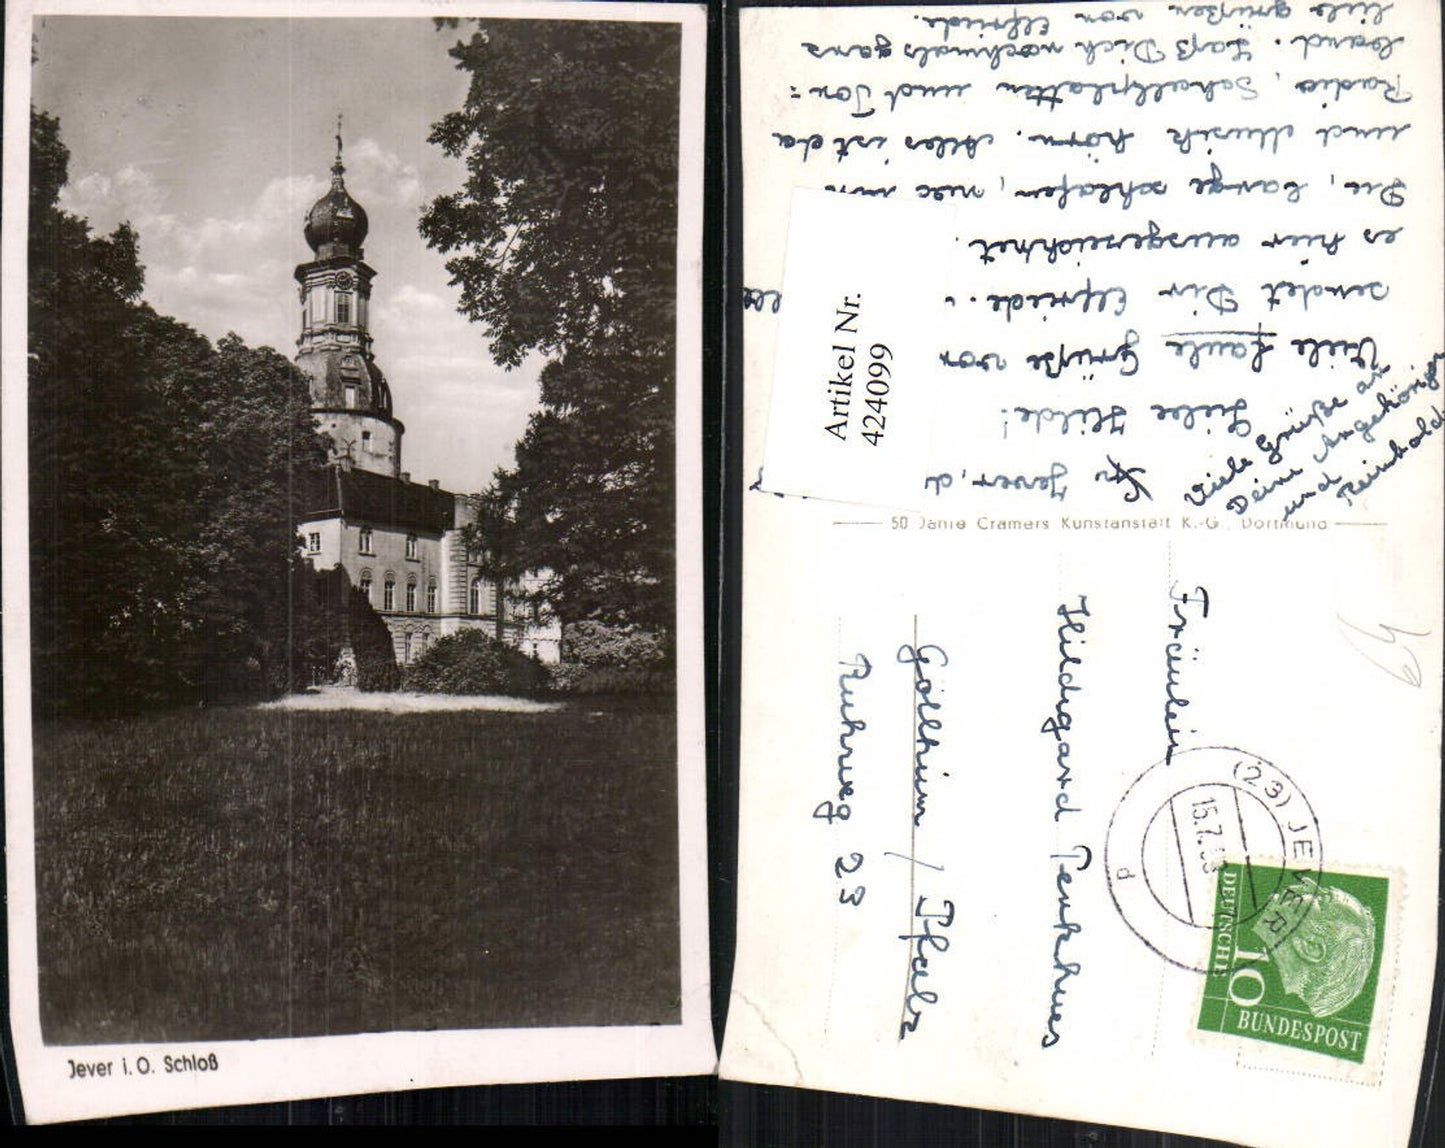 Jever i. O. Schloß
Jever, d
Liebe Hilde!
Viele faule Grüße von
sendet Dir Elfriede.
es hier ausgezeichnet.
Du, lange schlafen,
und Musik hören. Alles ist da
Radio, Schallplatten und Ton=
band. Laß Dich nochmals ganz
lieb grüßen von Elfriede.
Viele Grüße an
Deine Angehörigen
und Reinhold
Artikel Nr.
424099
50 Jahre Cramers Kunstanstalt K.-G., Dortmund
Fräulein
Hildegard Penkhues
Göllheim / Pfalz
Ruhweg 23
(23) JEVER
15.7.
d
DEUTSCHE
10
BUNDESPOST